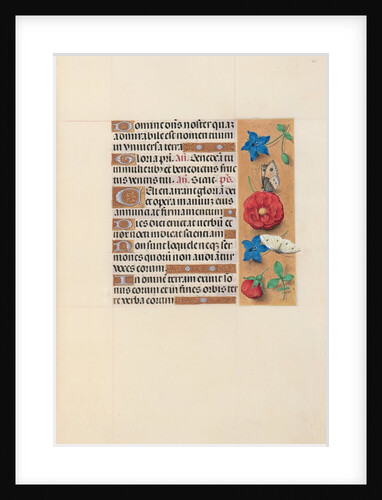 Domine dñs noster quaz
admirabile est nomen tuum
in universa terra
Gloria pri. añ. Benedicta tu
in mulieribus et benedictus fruc
tus ventris tui. añ. Sicut. ps.
Celi enarrant gloria dei
et opera manuum eius
annunciat firmamentum
Dies diei eructat verbum et
nox nocti indicat scientiam
Non sunt loquele neqz ser
mones quorum non audiantur
voces eorum
In omnem terram exivit so
nus eorum et in fines orbis ter
re verba eorum